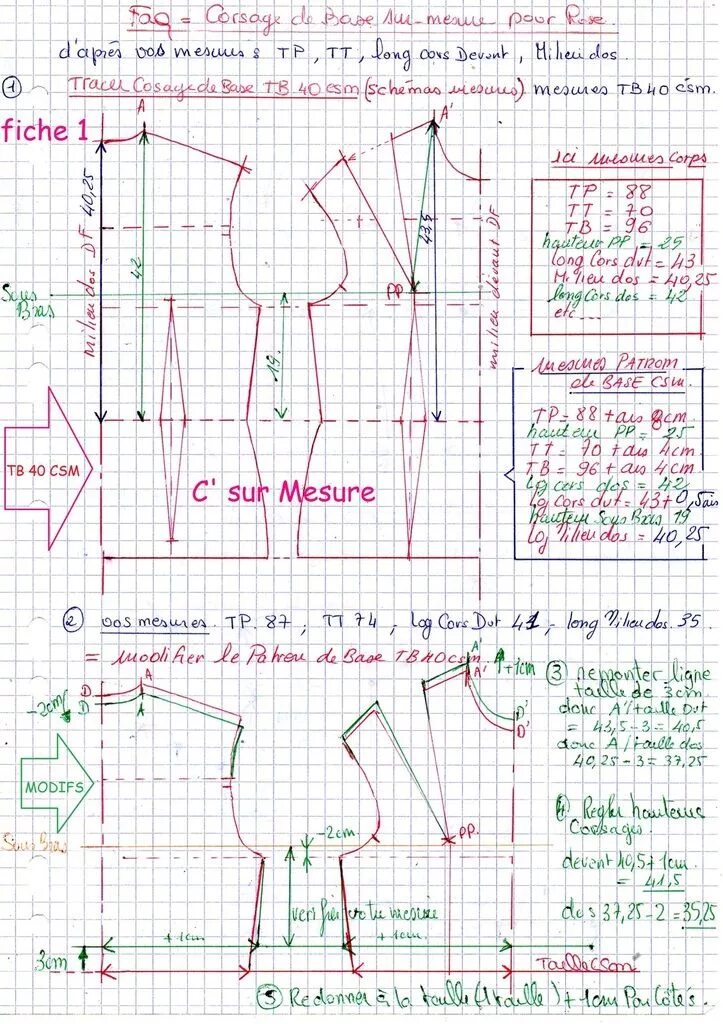 FaQ = Corsage de Base Sur-mesure pour Rose.
d'après vos mesures TP, TT, long cors Devant, Milieu dos.
① Tracer Cosage de Base TB 40 csm (schémas mesures) mesures TB 40 csm.
fiche 1
A
A'
ici mesures corps
TP = 88
TT = 70
TB = 96
hauteur PP = 25
long Cors dvt = 43
Milieu dos = 40,25
long Cors dos = 42
etc...
milieu dos DF 40,25
42
43,5
milieu devant DF
PP
Sous Bras
19
mesures PATROM
de BASE CSM.
TP = 88 + ais 8cm
hauteur PP = 25
TT = 70 + ais 4cm
TB = 96 + ais 4cm
Lg cors dos = 42
Lg Cors dvt = 43+0,5 ais
hauteur Sous Bras 19
Lg Milieu dos = 40,25
TB 40 CSM
C' sur Mesure
② vos mesures. TP. 87, TT 74, Log Cors Dvt 41, - long Milieu dos. 35
= modifier le Patron de Base TB 40 csm.
A
A
D
D
-2cm
A'
A'
A+1cm
D'
D'
③ remonter ligne
taille de 3cm.
donc A'/taille Dvt
= 43,5-3 = 40,5
donc A/taille dos
40,25-3 = 37,25
MODIFS
Sous Bras
-2cm
PP.
④ Regler hauteurs
Corsages.
devant 40,5+1cm
= 41,5
dos 37,25-2 = 35,25
verifier votre mesure
+1cm
+1cm
3cm
Taille CSM
⑤ Redonner à la taille (1 taille) + 1cm Par Côtés.